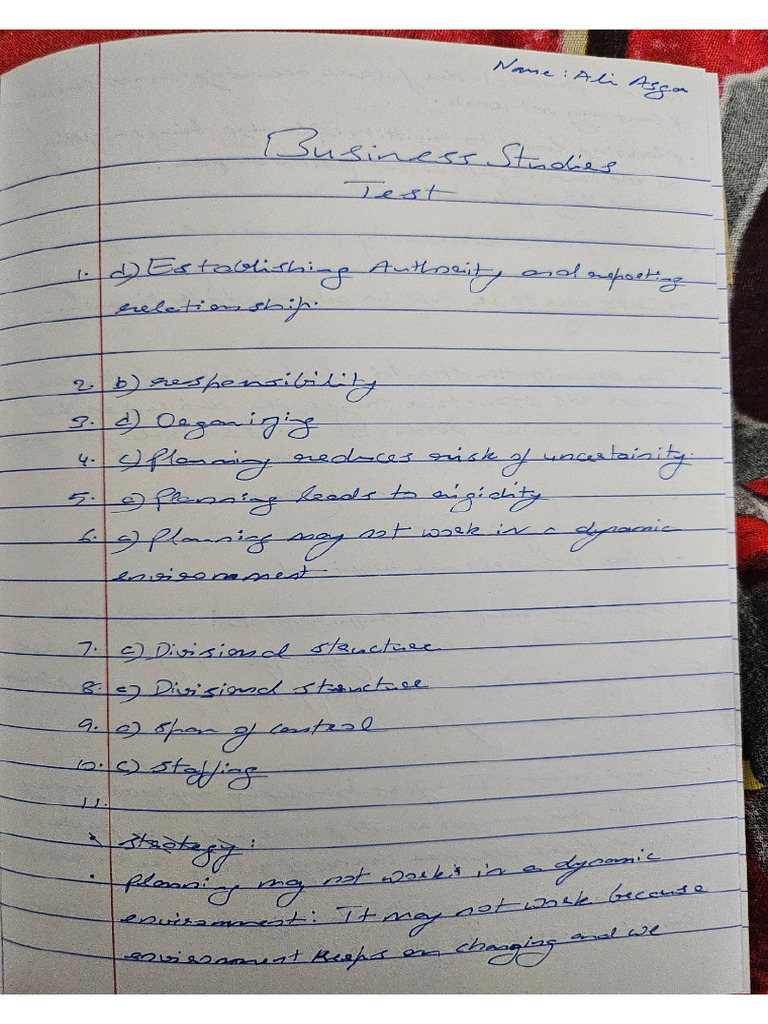 Name: Ali Asgar
Business Studies
Test
1. d) Establishing Authority and reporting
relationship.
2. b) responsibility
3. d) Organizing
4. c) Planning reduces risk of uncertainity.
5. a) Planning leads to rigidity
6. a) Planning may not work in a dynamic
environment
7. a) Divisional structure
8. a) Divisional structure
9. a) Span of control
10. c) Staffing
11.
Strategy:
• Planning may not works in a dynamic
environment: It may not work because
environment keeps on changing and we